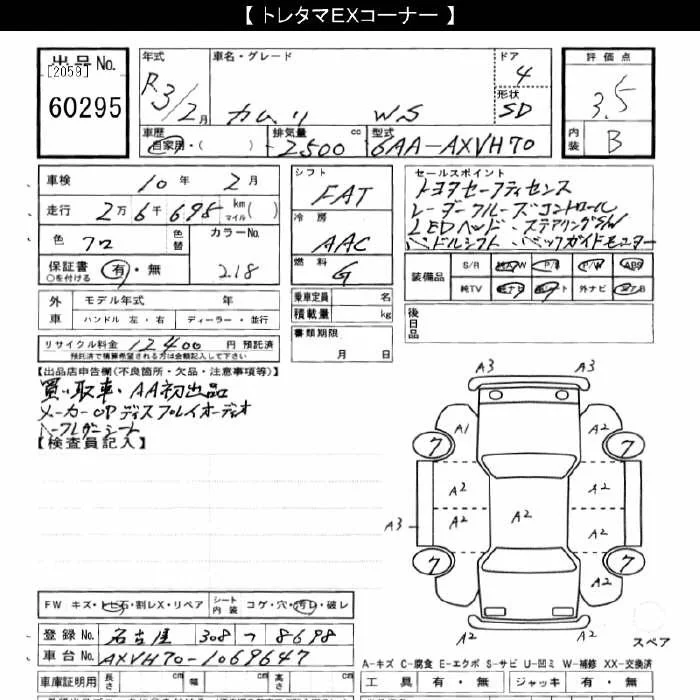 【 トレタマEXコーナー 】
出品No.
[2059]
60295
年式 車名・グレード ドア 評価点
R3/2月 カムリ WS 4 3.5
形状 SD
車歴 自家用・( ) 排気量 2500 cc 型式 6AA-AXVH70 内装 B
車検 10年 2月
走行 2万6千698 km マイル( )
色 クロ 色替 カラーNo. 218
保証書 ○を付ける 有・無
外車 モデル年式 年
ハンドル 左・右 ディーラー・並行
リサイクル料金 12400 円 預託済
預託済で精算希望される方は金額記入して下さい
シフト FAT
冷房 AAC
燃料 G
乗車定員 名
積載量 kg
書類期限
月 日
セールスポイント
トヨタセーフティセンス
レーダークルーズコントロール
LEDヘッド・ステアリングSW
パドルシフト バックガイドモニター
装備品 S/R P/S P/W ABS
純TV 純ナビ 外ナビ
後日品
【出品店申告欄(不良箇所・欠品・注意事項等)】
買い取車・AA初出品
メーカーOPディスプレイオーディオ
ハーフレザーシート
【検査員記入】
A3
A3
A1 A2
7 7
A3 A2
A2
A3 A2 A2
7 7
A2 A2
A2
スペア
FW キズ・トビ石・割レX・リペア シート内装 コゲ・穴・汚レ・破レ
登録No. 名古屋 308 つ 8698
車台No. AXVH70-1069647
車庫証明用 長さ cm 幅 cm 高さ cm
A-キズ C-腐食 E-エクボ S-サビ U-凹ミ W-補修 XX-交換済
工具 有・無 ジャッキ 有・無